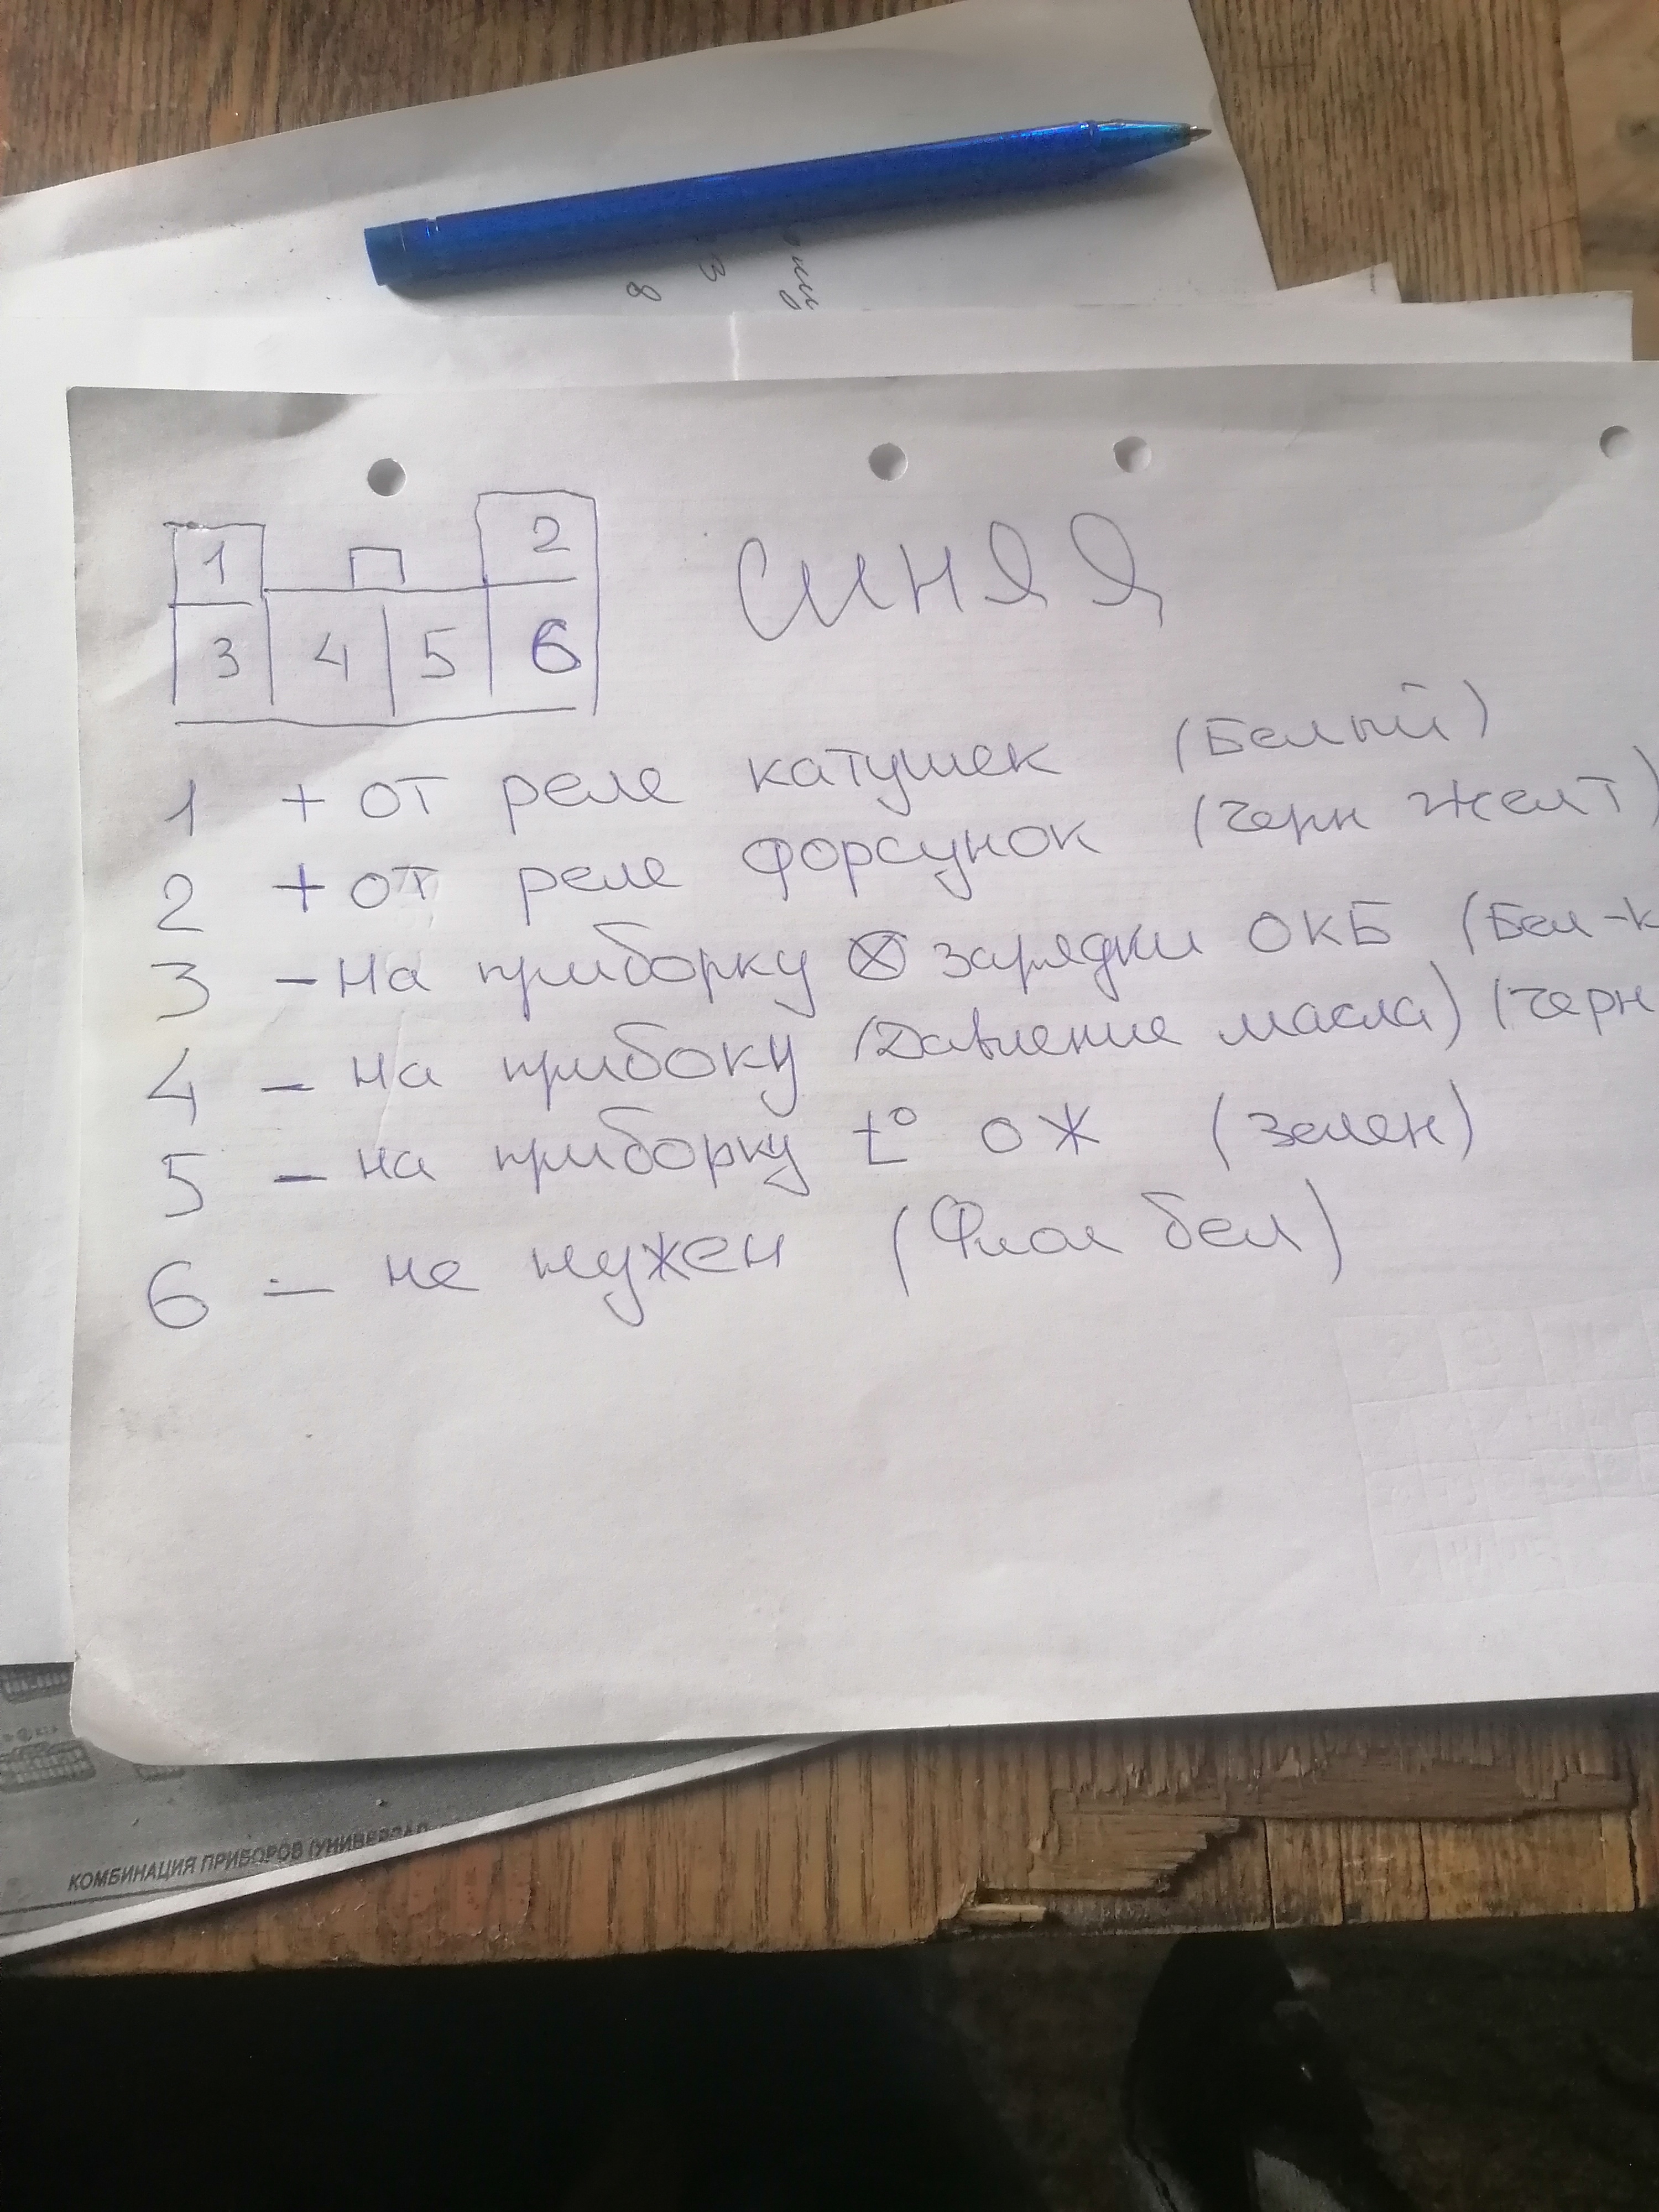 1
2
3 4 5 6
синяя
1 + от реле катушек (Белый)
2 + от реле форсунок (черн желт)
3 - на приборку ⊗ зарядки ОКБ (Бел-к
4 - на прибоку (Давление масла) (черн
5 - на приборку t° ОЖ (зелен)
6 - не нужен (Фиол бел)
КОМБИНАЦИЯ ПРИБОРОВ (УНИВЕРСАЛ